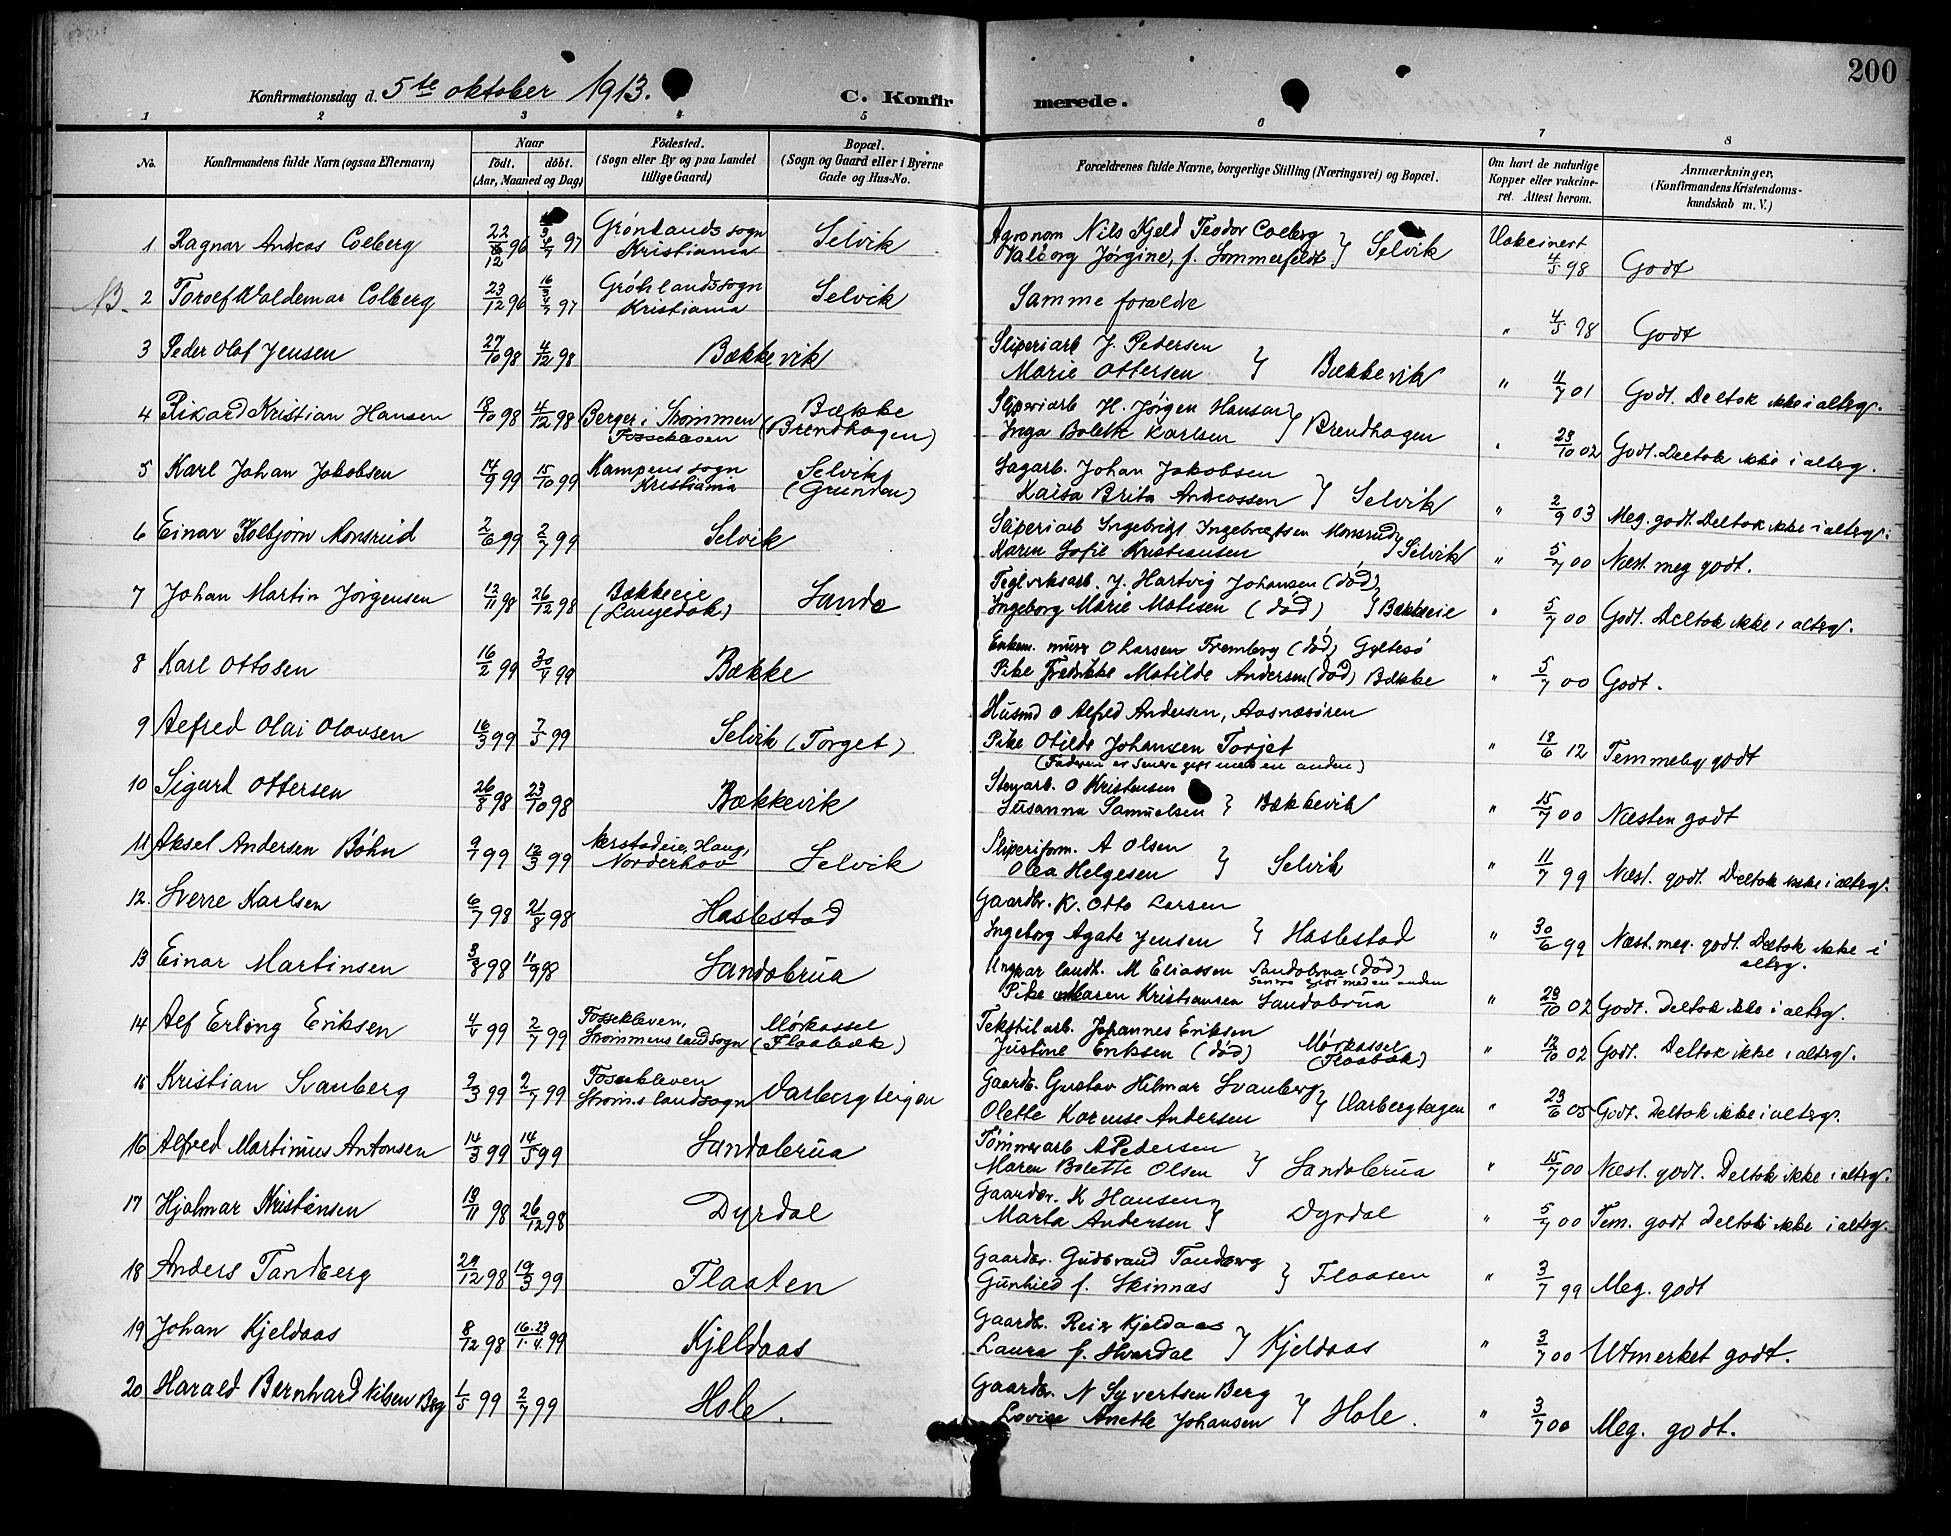 200
Konfirmationsdag d. 5te oktober 1913.
C. Konfirmerede.
1 2 3 4 5 6 7 8
No.
Konfirmandens fulde Navn (ogsaa Efternavn)
Naar
født. døbt.
(Aar, Maaned og Dag)
Fødested.
(Sogn eller By og paa Landet
tillige Gaard)
Bopæl.
(Sogn og Gaard eller i Byerne
Gade og Hus-No.
Forældrenes fulde Navne, borgerlige Stilling (Næringsvei) og Bopæl.
Om havt de naturlige
Kopper eller vakcine-
ret. Attest herom.
Anmærkninger.
(Konfirmandens Kristendoms-
kundskab m. V.)
1 Ragnar Andreas Colberg 22/12 96 97 Grønlands sogn Kristiania Selvik
Agronom Nils Kjeld Teodor Colberg
Valborg Jørgine, f. Sommerfeldt } Selvik Vakcinert 4/5 98 Godt
NB. 2 Torolf Valdemar Colberg 23/12 96 97 Grønlandssogn Kristiania Selvik
Samme forældre " 4/5 98 Godt
3 Peder Olaf Jensen 27/10 98 4/12 98 Bækkevik
Sliperiarb J. Pedersen
Marie Ottersen } Bækkevik " 11/7 01 Godt. Deltok ikke i altrg.
4 Rikard Kristian Hansen 18/10 98 4/12 98 Berger i Strømmen Fossekleven Bække (Brendhagen)
Sliperiarb H. Jørgen Hansen
Inga Bolette Karlsen } Brendhagen " 23/10 02 Godt. Deltok ikke i altrg.
5 Karl Johan Jakobsen 14/9 99 15/10 99 Kampens sogn Kristiania Selvik (Grunden)
Sagarb. Johan Jakobsen
Kaisa Brita Andreassen } Selvik " 2/9 03 Meg. godt. Deltok ikke i altrg.
6 Einar Kolbjørn Monsrud 2/6 99 2/7 99 Selvik
Sliperiarb Ingebrigt Ingebrigtsen Monsrud
Karen Sofie Kristiansen } Selvik " 5/7 00 Næst. meg godt.
7 Johan Martin Jørgensen 12/11 98 26/12 98 Bækkeeie (Langedok) Sande
Teglverksarb. J. Hartvig Johansen (død)
Ingeborg Marie Matisen (død) } Bækkeeie " 5/7 00 Godt. Deltok ikke i altrg.
8 Karl Ottosen 16/2 99 30/4 99 Bække
Enkem. murer O Larsen Fremberg (død) Gyltesø
Pike Fredrikke Matilde Andersen (død) Bække " 5/7 00 Godt.
9 Alfred Olai Olavsen 16/3 99 7/5 99 Selvik (Torget)
Husmd O Alfred Andersen, Aasnæsøren
Pike Otilde Johansen Torjet
(Faderen er senere gift med en anden) " 18/6 12 Temmelig godt
10 Sigurd Ottersen 26/8 98 23/10 98 Bækkevik
Stenarb. O Kristensen
Susanna Samuelsen } Bækkevik " 15/7 00 Næsten godt
11 Aksel Andersen Bøhn 9/1 99 12/3 99 Haug, Norderhov Selvik
Sliperiform. A Olsen
Olea Helgesen } Selvik " 11/7 99 Næst. godt. Deltok ikke i altrg.
12. Sverre Karlsen 6/7 98 21/8 98 Haslestad
Gaardbr. K. Otto Larsen
Ingeborg Agate Jensen } Haslestad " 30/6 99 Næst. meg. godt. Deltok ikke i altrg.
13 Einar Martinsen 3/8 98 11/9 98 Sandebrua
Ungkar landh. M Eliassen Sandebrua (død)
senere gift med en anden
Pike Maren Kristiansen Sandebrua " 28/10 02 Godt. Deltok ikke i altrg.
14 Alf Erling Eriksen 4/4 99 2/7 99 Fossekleven, Strømmens landsogn Mørkassel (Flaabæk)
Tekstilarb. Johannes Eriksen
Justine Eriksen (død) Mørkassel (Flaabæk) " 12/10 02 Godt. Deltok ikke i altrg.
15 Kristian Svanberg 2/3 99 2/7 99 Fossekleven Strøm.s landsogn Varbergteigen
Gaardb. Gustav Hilmar Svanberg
Olette Karense Andersen } Varbergteigen " 23/6 05 Godt. Deltok ikke i altrg.
16 Alfred Martinius Antonsen 14/3 99 14/5 99 Sandebrua
Tømmerarb A Pedersen
Maren Bolette Olsen } Sandebrua " 15/7 00 Næst. godt. Deltok ikke i altrg.
17 Hjalmar Kristensen 18/11 98 26/12 98 Dyrdal
Gaardbr. K Hansen
Marta Andersen } Dyrdal " 5/7 00 Tem. godt Deltok ikke i altrg.
18 Anders Tandberg 29/12 98 19/3 99 Flaaten
Gaardbr. Gudbrand Tandberg
Gunhild f. Skinnæs } Flaasen " 3/7 99 Meg. godt
19 Johan Kjeldaas 8/12 98 16.23/1.4. 99 Kjeldaas
Gaardb. Reier Kjeldaas
Laura f. Hvardal } Kjeldaas " 3/7 00 Utmerket godt.
20 Harald Bernhard Nilsen Berg 1/5 99 2/7 99 Hole.
Gaardbr. N Syvertsen Berg
Lovise Anette Johansen } Hole. " 3/7 00 Meg. godt.